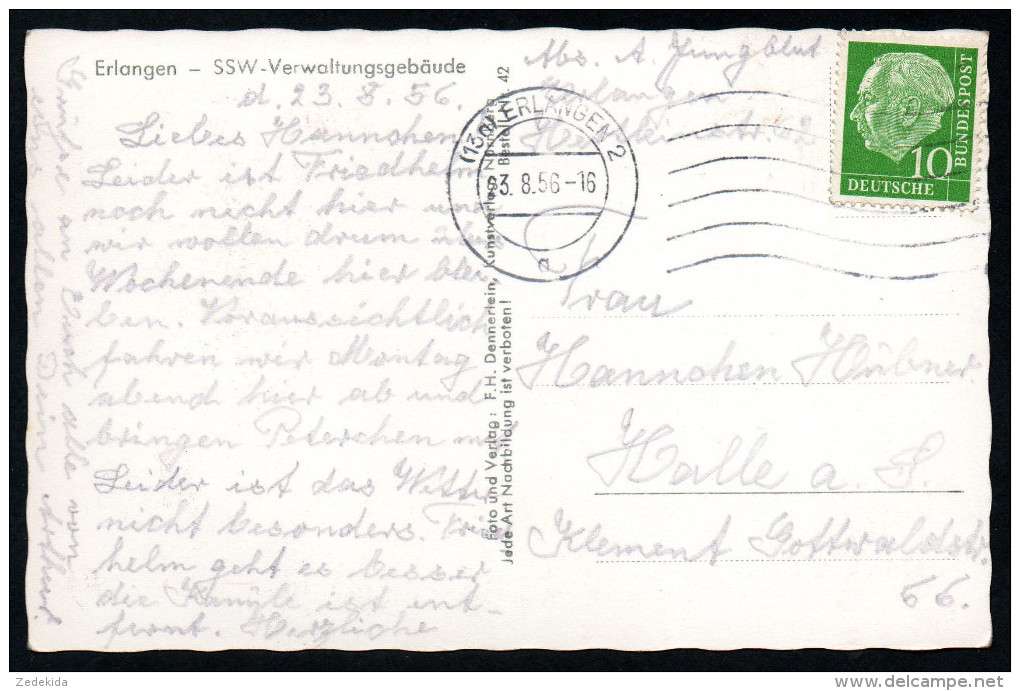 Erlangen – SSW-Verwaltungsgebäude
d. 23. 8. 56.
Liebes Hannchen
Leider ist Friedhelm
noch nicht hier und
wir wollen drum über
Wochenende hier blei
ben. Voraussichtlich
fahren wir Montag
abend hier ab und
bringen Peterchen mit
Leider ist das Wetter
nicht besonders. Fried
helm geht es besser
die Kanüle ist ent-
fernt. Herzliche
Grüße an Euch alle von
uns allen Dein
Foto und Verlag: F.H. Dennerlein, Kunstverlag, Nürnberg
Jede Art Nachbildung ist verboten! Bestell-Nr. 42
Abs. A. Jungblut
Erlangen
62
(13a) ERLANGEN 2
23.8.56-16
a
10
DEUTSCHE
BUNDESPOST
Frau
Hannchen Hübner
Halle a. S.
Klement Gottwaldstr.
66.
Zedekida
www.delcampe.net